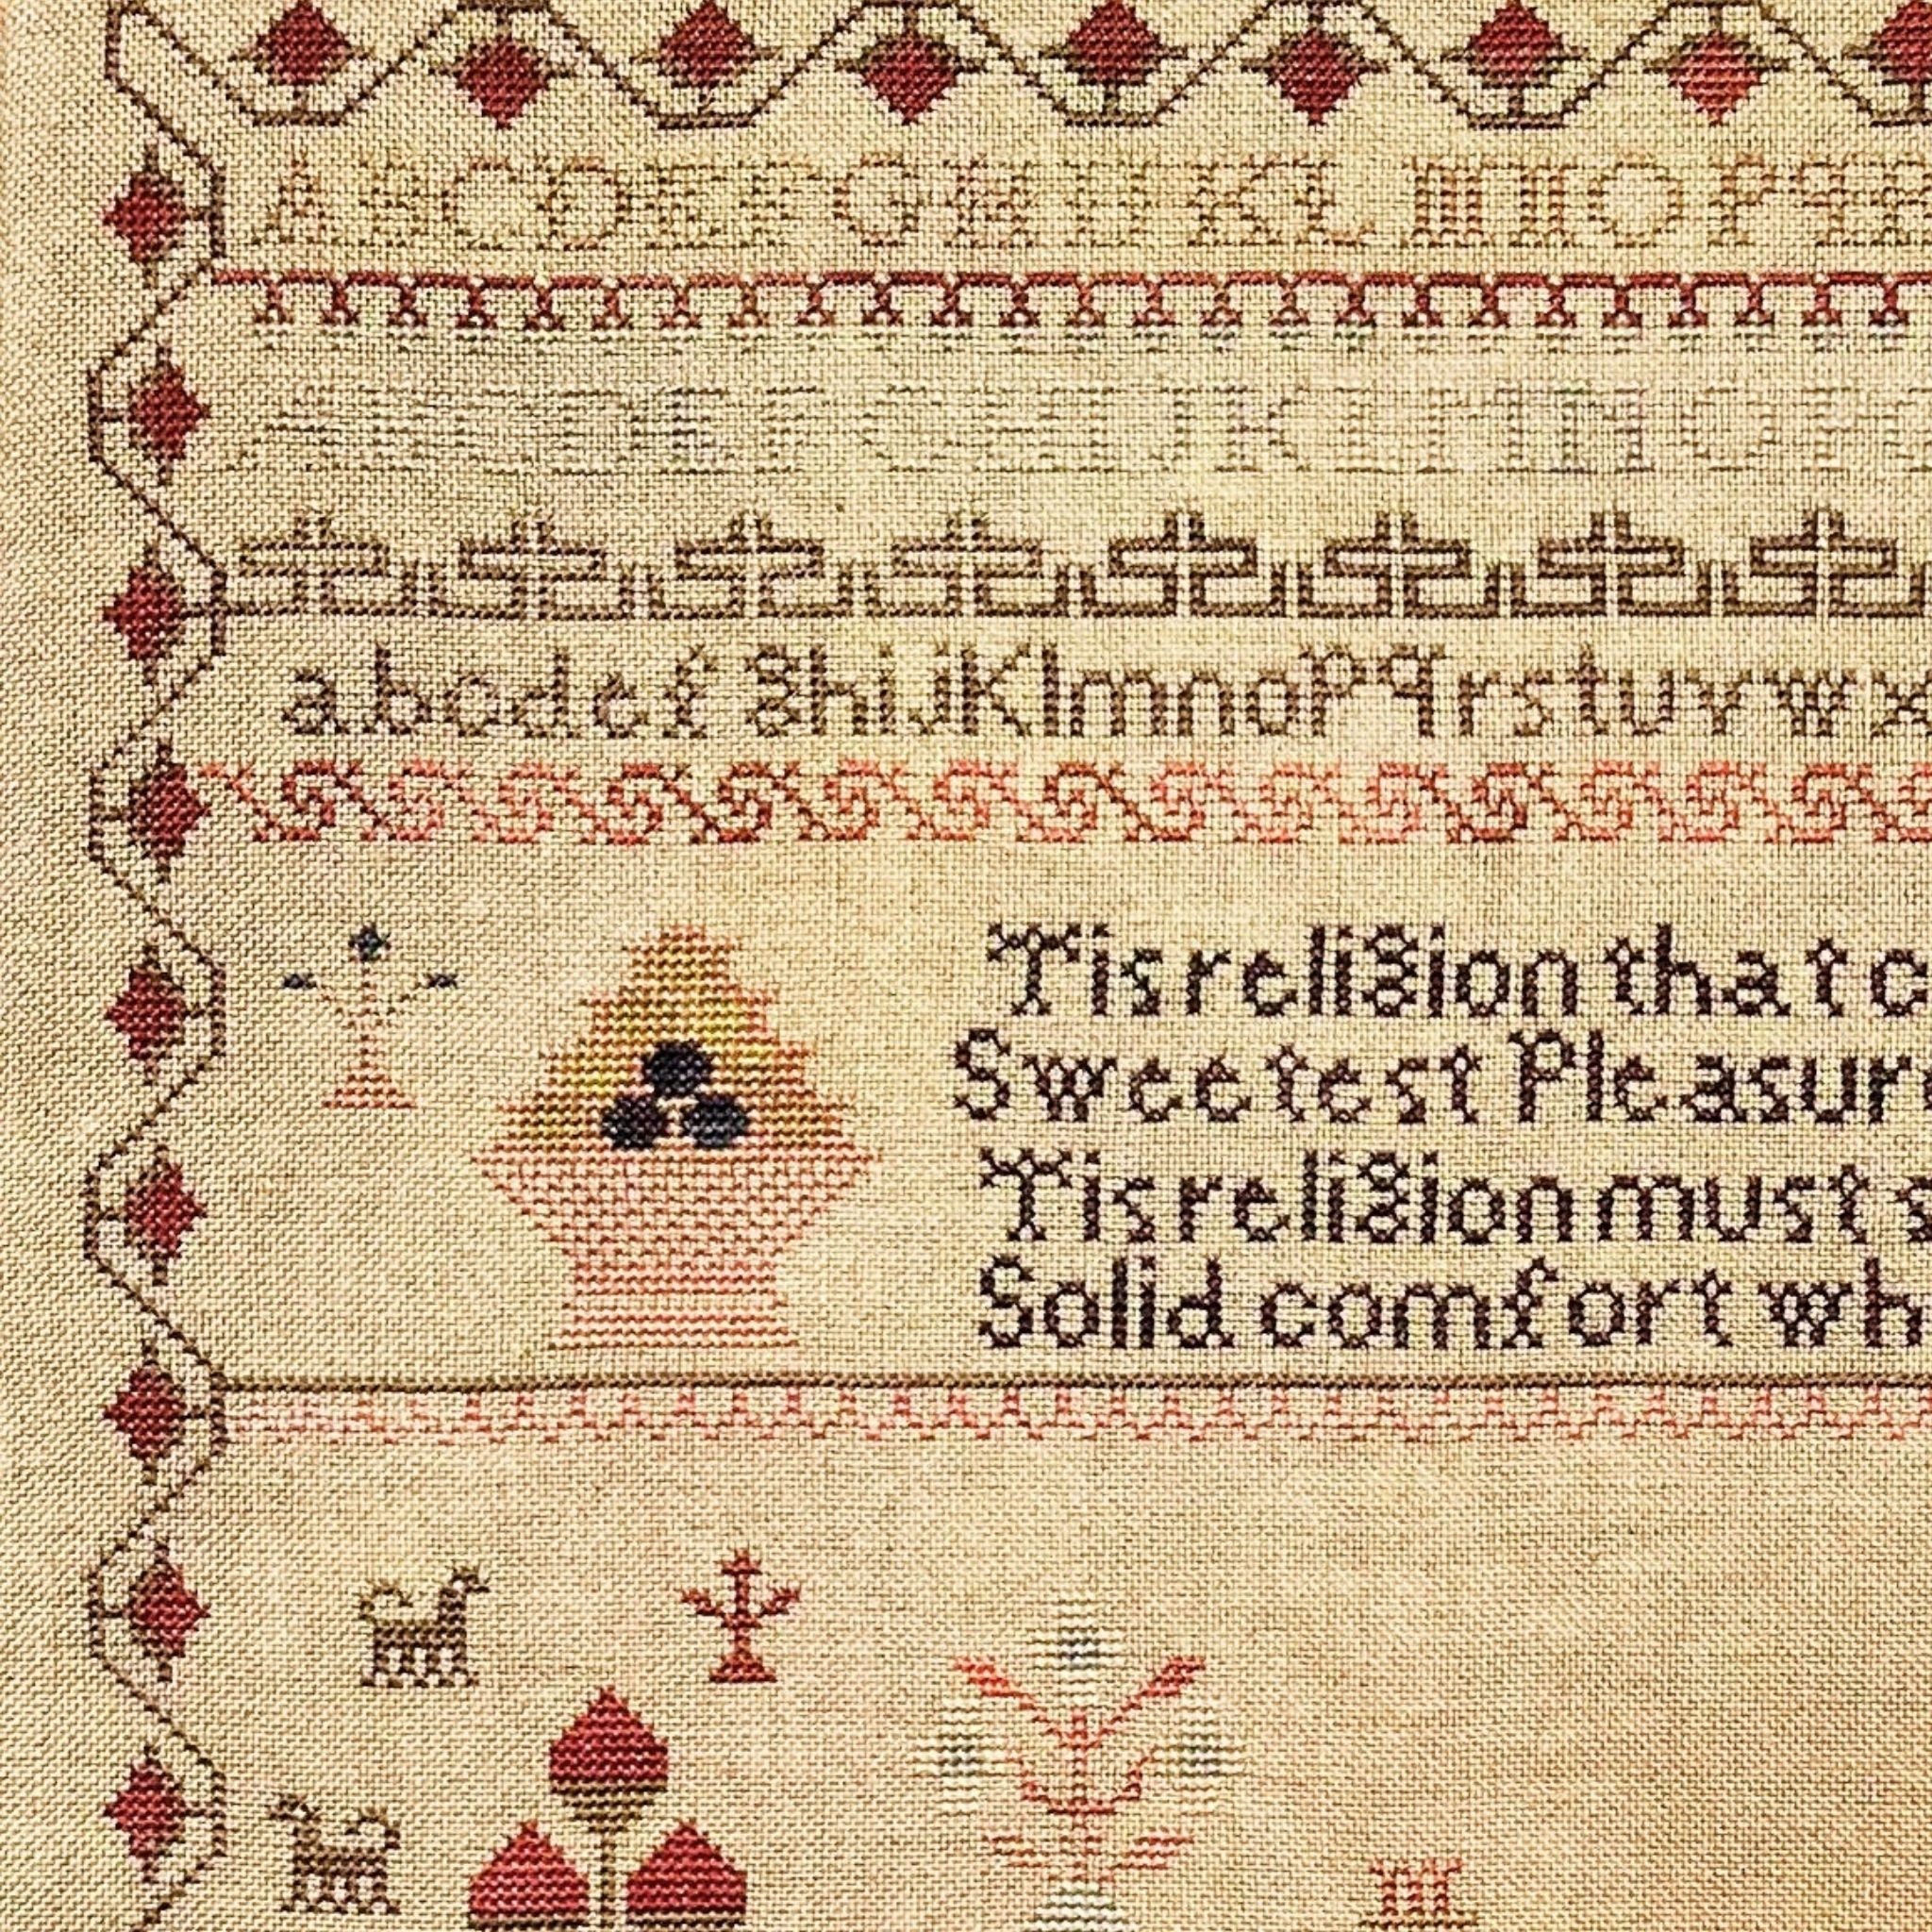 ABCDEFGHIJKLMNOPQR
ABCDEFGHIJKLMNOP
abcdefghijKlmnopqrstuvwx
Tis religion that c
Sweetest Pleasur
Tis religion must s
Solid comfort wh